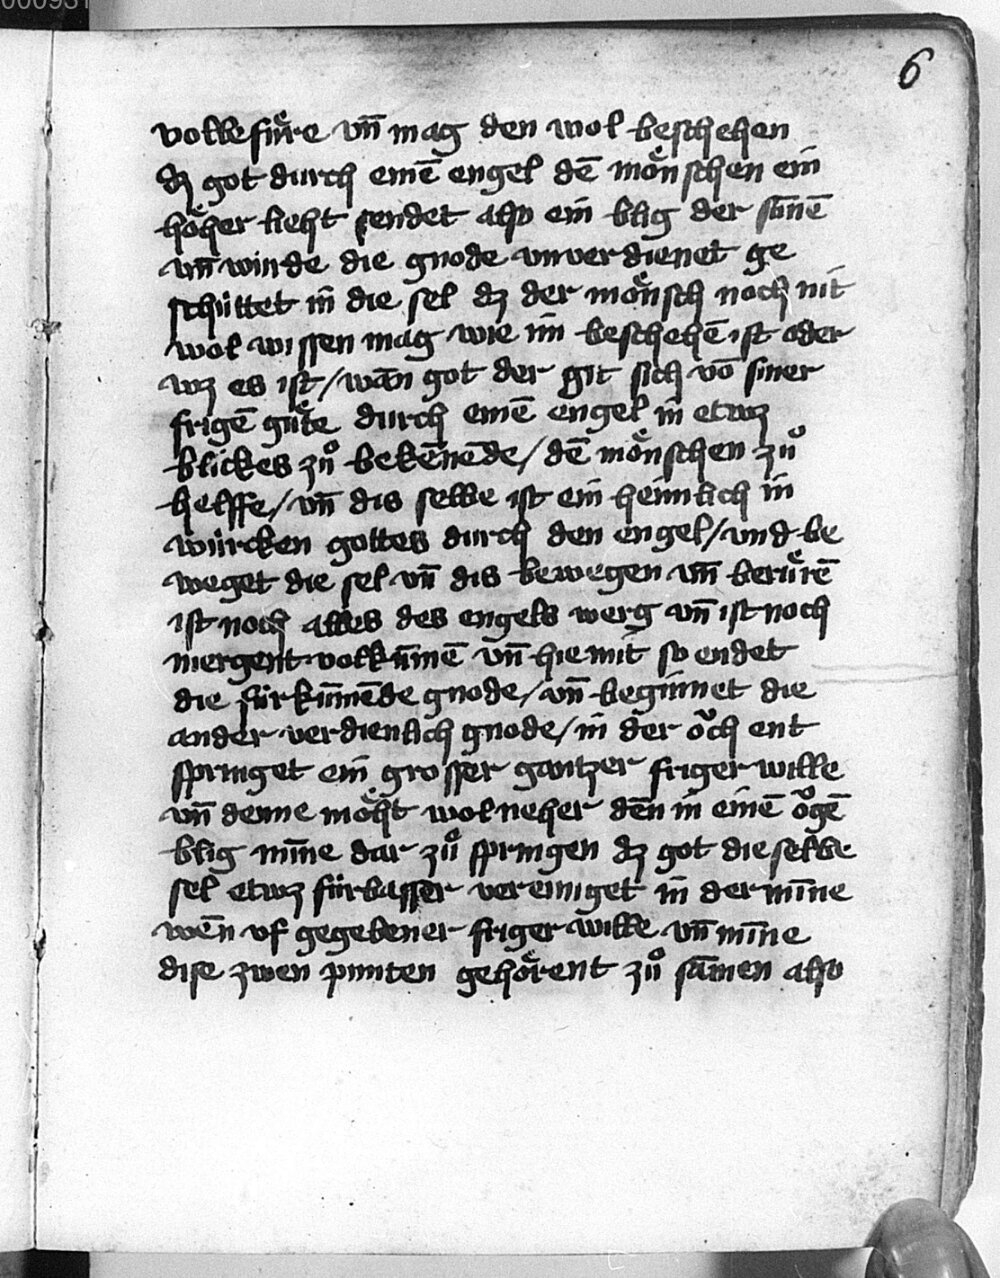 000931
6
vollefuͤre vn̄ mag den wol beschehen
dz got durch einē engel dē moͤnschen ein
hoͤher lieht sendet also ein blig der sūnē
vn̄ wurde die gnode vnverdienet ge
schüttet in die sel dz der moͤnsch noch nit
wol wissen mag wie im beschehē ist oder
wz es ist / wān got der git sich vō siner
frigē guͤte durch einē engel in etwz
blickes zuͦ bekēnēde / dē moͤnschen zuͦ
helffe / vn̄ dis selbe ist ein heimlich in
würcken gottes durch den engel / vnd be
weget die sel vn̄ dis bewegen vn̄ beruͤrē
ist noch alles des engels werg vn̄ ist noch
niergent volkūmē vn̄ hie mit so endet
die fürkūmēde gnode / vn̄ beginnet die
ander verdienlich gnode / in der oͮch ent
springet ein grosser gantzer friger wille
vn̄ denne moͤht wol neher dēn in einē oͮgē
blig mīne dar zuͦ springen dz got die selbe
sel etwz fürbasser vereiniget in der mīne
wēn vf gegebener friger wille vn̄ mīne
dise zwen punten gehoͤrent zuͦ sāmen also